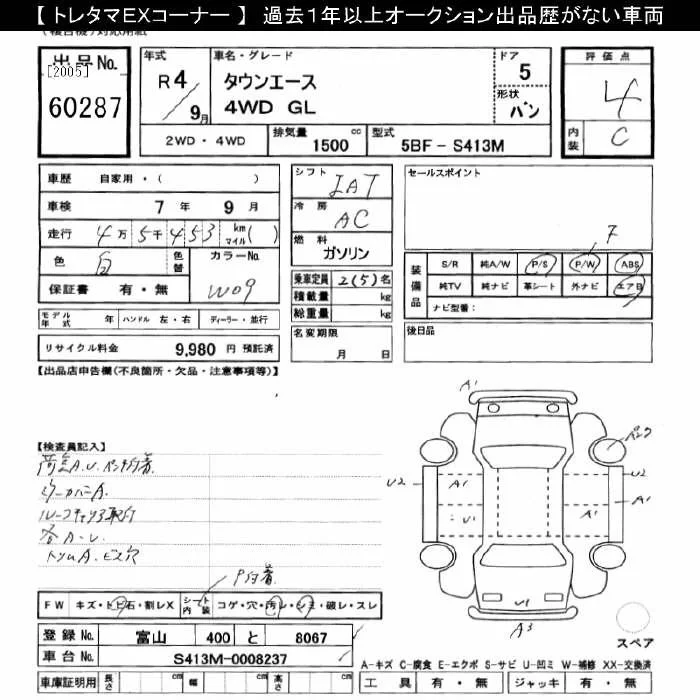 【トレタマEXコーナー】 過去1年以上オークション出品歴がない車両
出品No.
[2005]
60287
年式
R4
9月
車名・グレード
タウンエース
4WD GL
ドア
5
形状
バン
評価点
4
内装
C
2WD・4WD
排気量 1500 cc
型式 5BF-S413M
車歴 自家用・( )
車検 7年 9月
走行 4万 5千 453 km マイル ( )
色 白 色替
カラーNo. W09
保証書 有・無
モデル年式 年 ハンドル 左・右 ディーラー・並行
リサイクル料金 9,980 円 預託済
シフト
IAT
冷房
AC
燃料
ガソリン
乗車定員 2(5)名
積載量 kg
総重量 kg
名変期限
月 日
セールスポイント
F
装備品
S/R 純A/W P/S P/W ABS
純TV 純ナビ 革シート 外ナビ エアB
ナビ型番:
後日品
【出品店申告欄(不良箇所・欠品・注意事項等)】
【検査員記入】
各A.U
トリムA.ビス穴
P付着
FW キズ・トビ石・割レX
シート内装 コゲ・穴・汚レ・シミ・破レ・スレ
登録No. 富山 400 と 8067
車台No. S413M-0008237
車庫証明用 長さ cm 幅 cm 高さ cm
A1
パンク
U2
A1
U1
A1
U2
A1
U1
A3
スペア
A-キズ C-腐食 E-エクボ S-サビ U-凹ミ W-補修 XX-交換済
工具 有・無 ジャッキ 有・無